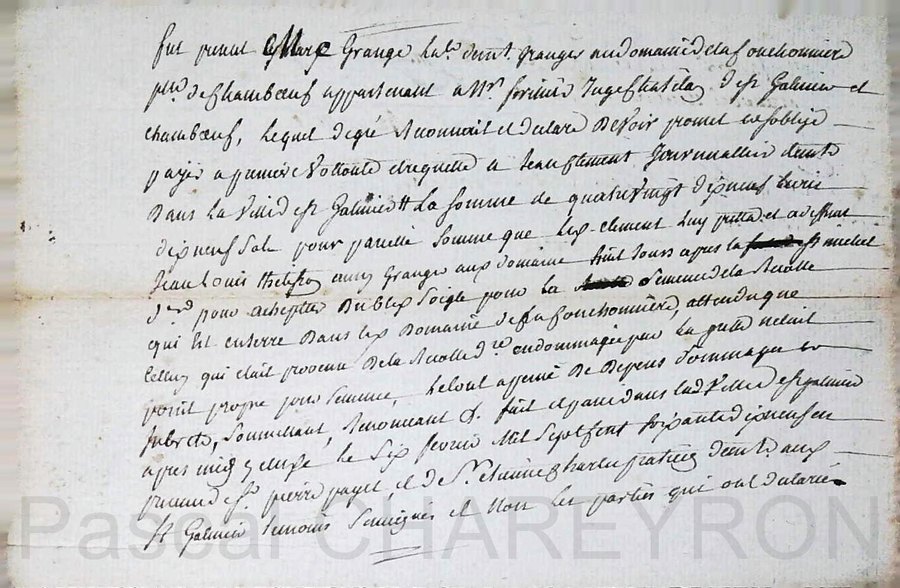 fut present Marc Grange hab. demt. granger au domaine de la fouchonniere
psse. de Chambœuf appartenant a Mr. Juge Chatelain de st Galmier et
chambœuf, Lequel degré Reconnoit et declare Devoir promet et soblige
payer a premiere Vollonté et requette a Jean Clement Journallier demt.
Dans La Ville de st Galmier La somme de quatrevingt dixneuf livres
dixneuf sols pour pareille somme que led. Clement Luy pretta et a
Jean Louis aussi Granger aud. domaine huit Jours apres la st michel
dre. pour achepter Du bled Soigle pour la Semence de la Recolte
qui Est enterre Dans led. Domaine de la fouchonniere, attendu que
Celluy qui etait provenu De la Recolte dre. endommagée par La grele netait
point propre pour Semence, a peine De Depens Dommages et
Interets, Soumettant, Renonceant &. fait et passé dans lad. Ville de st galmier
apres midy le Six fevrier Mil Sept Cent Soixante dixneuf en
presence de Sr. pierre payet, et de Sr. Etienne Charles praticiens demt. aud.
St Galmier Temoins Soussignés et Non Les parties qui ont declaré
Pascal CHAREYRON